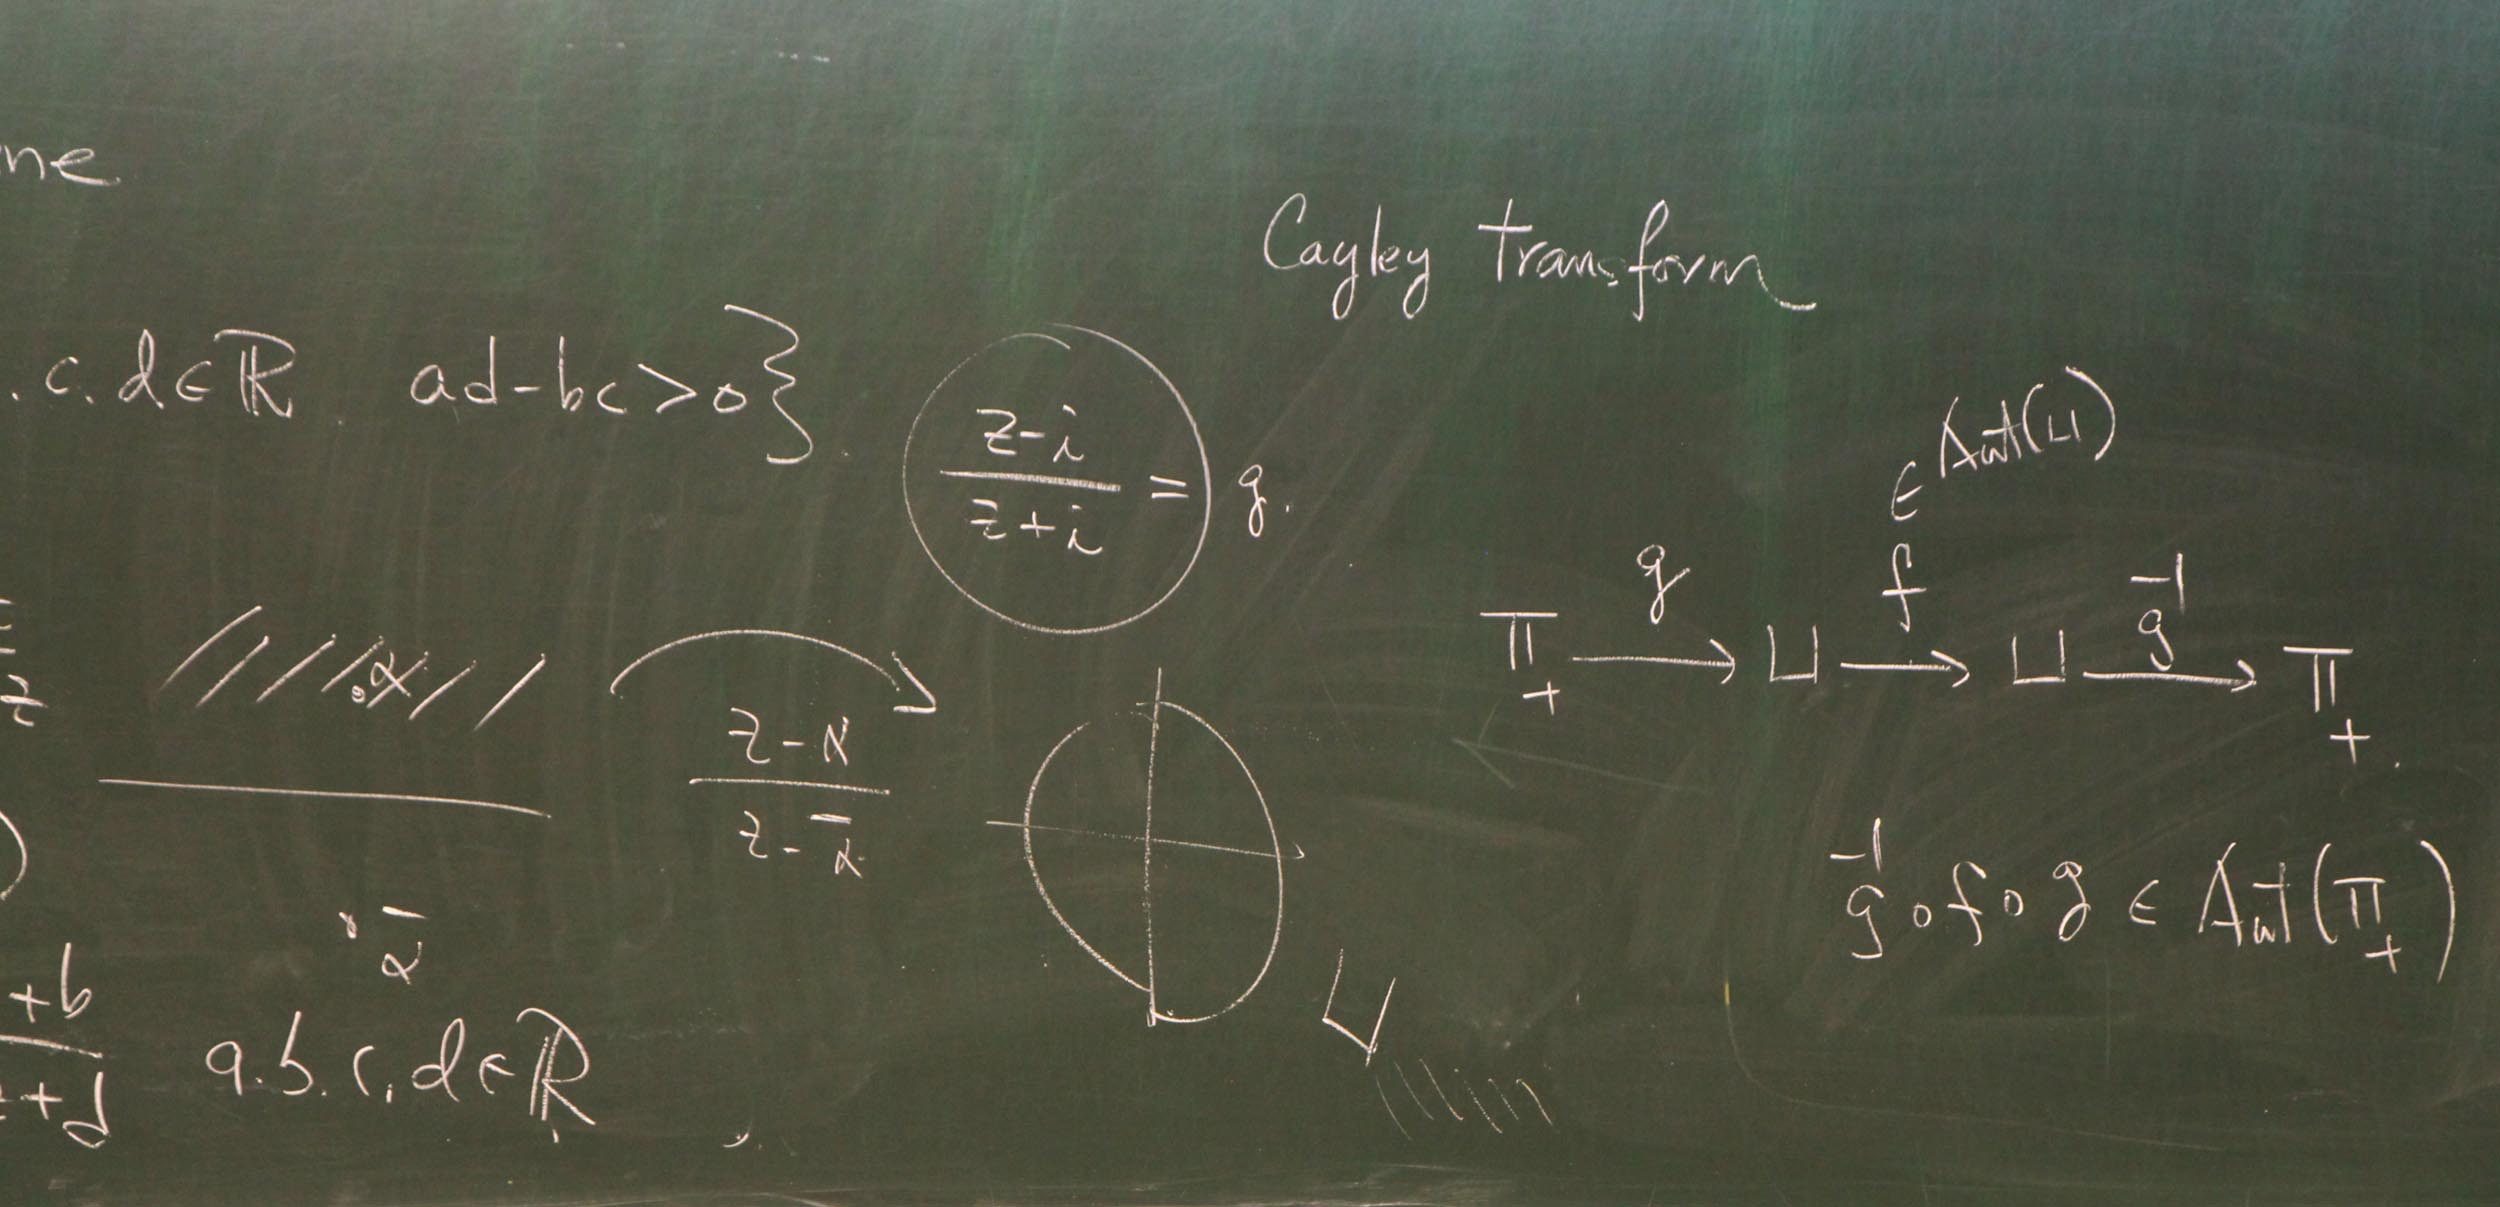 ne
Cayley Transform
. c. d ∈ ℝ ad-bc>0}.
z-i
z+i
= g.
∈ Aut(⊔)
g f -1
g
Π+ → ⊔ → ⊔ → Π+.
α
z-α
z-ᾱ
z
ᾱ
-1
g∘f∘g ∈ Aut(Π+)
⊔
+b
+d
a.b.c.d ∈ ℝ,